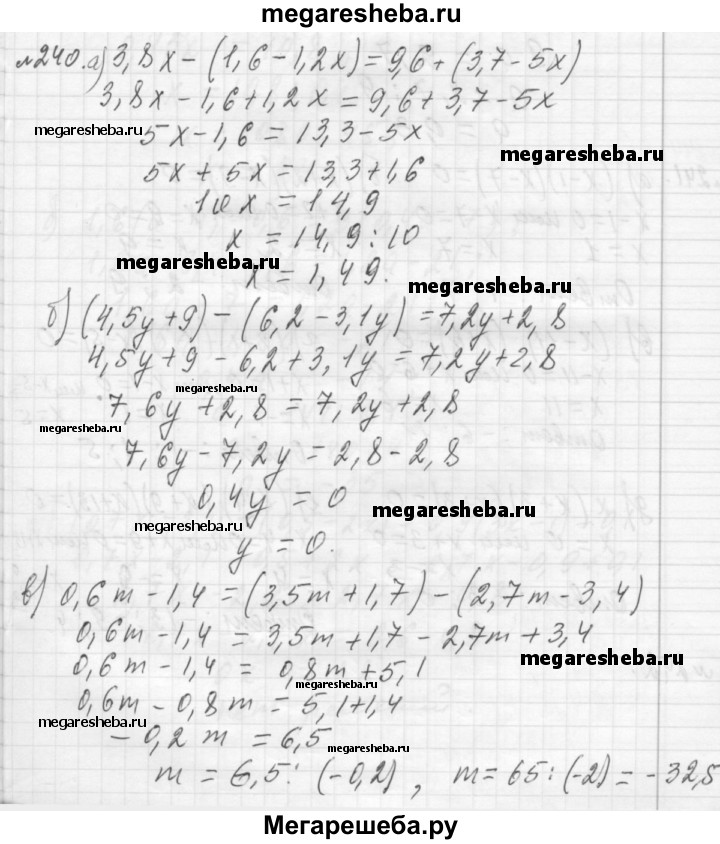 megaresheba.ru
№240. а) 3,8x - (1,6 - 1,2x) = 9,6 + (3,7 - 5x)
3,8x - 1,6 + 1,2x = 9,6 + 3,7 - 5x
megaresheba.ru
5x - 1,6 = 13,3 - 5x
megaresheba.ru
5x + 5x = 13,3 + 1,6
10x = 14,9
x = 14,9 : 10
megaresheba.ru
x = 1,49.
megaresheba.ru
б) (4,5y + 9) - (6,2 - 3,1y) = 7,2y + 2,8
4,5y + 9 - 6,2 + 3,1y = 7,2y + 2,8
megaresheba.ru
7,6y + 2,8 = 7,2y + 2,8
megaresheba.ru
7,6y - 7,2y = 2,8 - 2,8
0,4y = 0
megaresheba.ru
megaresheba.ru
y = 0.
в) 0,6m - 1,4 = (3,5m + 1,7) - (2,7m - 3,4)
0,6m - 1,4 = 3,5m + 1,7 - 2,7m + 3,4
megaresheba.ru
0,6m - 1,4 = 0,8m + 5,1
megaresheba.ru
0,6m - 0,8m = 5,1 + 1,4
megaresheba.ru
- 0,2m = 6,5
megaresheba.ru
m = 6,5 : (-0,2) , m = 65 : (-2) = -32,5
megaresheba.ru
Мегарешеба.ру